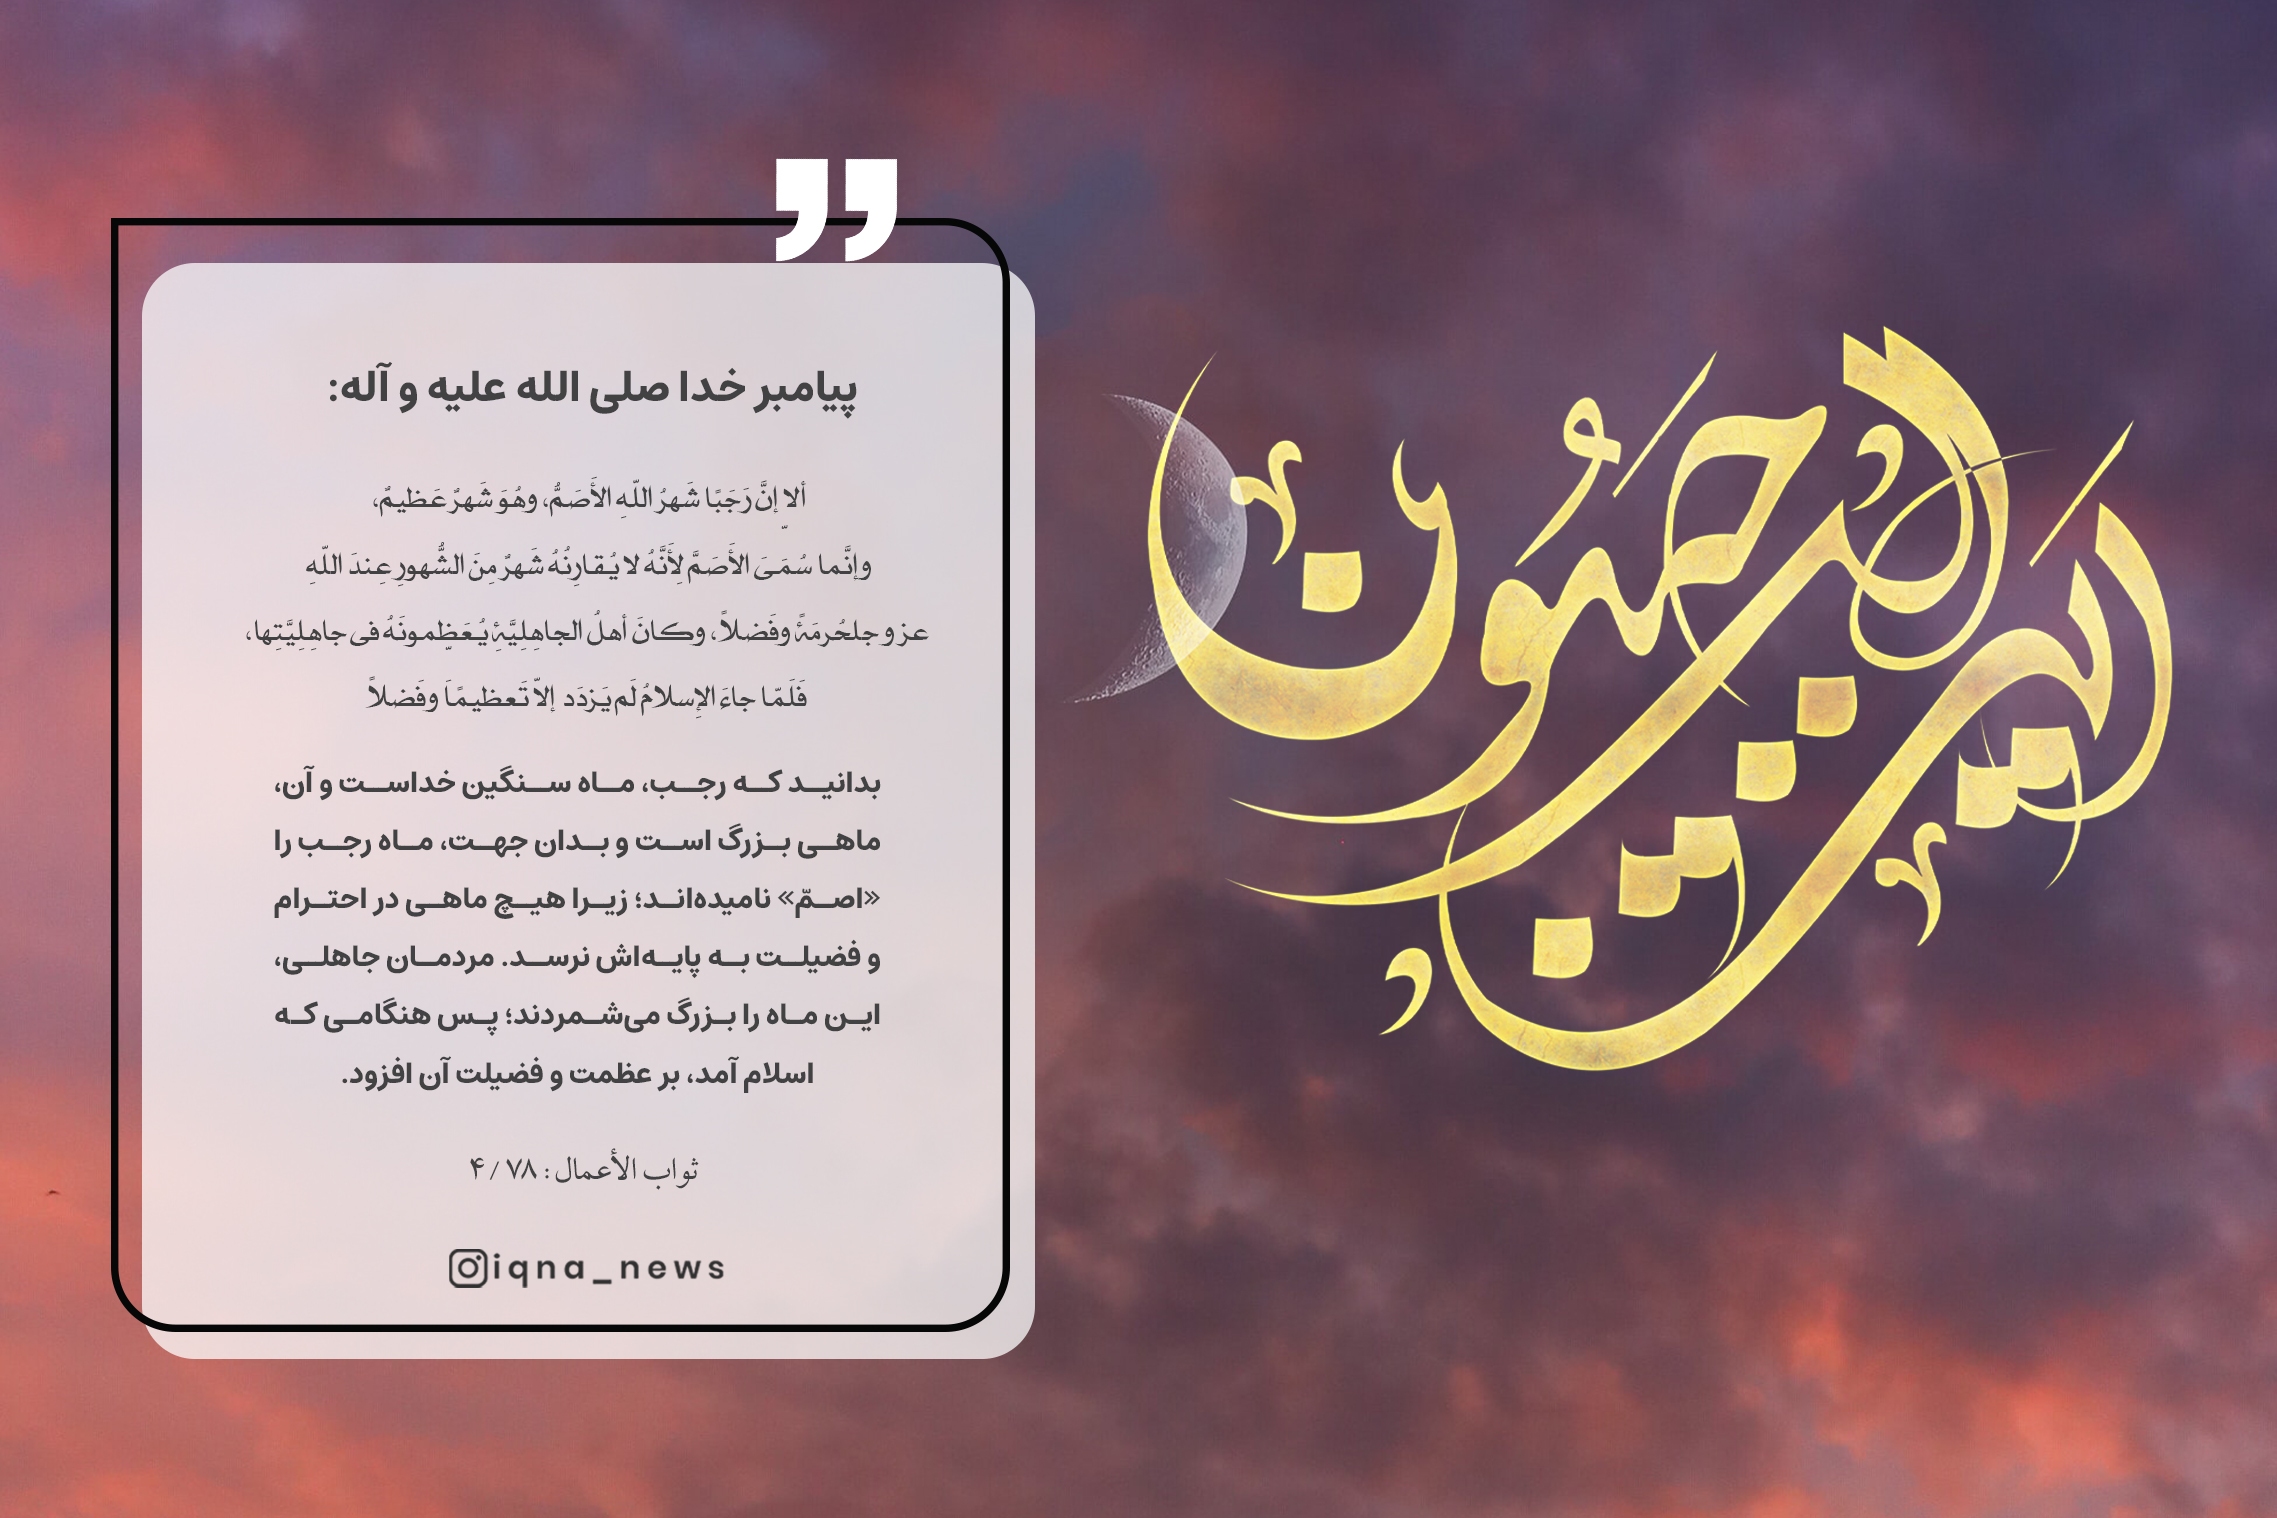 این الرجبیون
پیامبر خدا صلی الله علیه و آله:
ألا إنَّ رَجَبًا شَهرُ اللّهِ الأَصَمُّ، وهُوَ شَهرٌ عَظیمٌ،
وإنَّما سُمِّیَ الأَصَمَّ لِأَنَّهُ لا یُقارِنُهُ شَهرٌ مِنَ الشُّهورِ عِندَ اللّهِ
عز و جلحُرمَةً وفَضلاً، وکانَ أهلُ الجاهِلِیَّةِ یُعَظِّمونَهُ فی جاهِلِیَّتِها،
فَلَمّا جاءَ الإسلامُ لَم یَزدَد إلاّ تَعظیمًا وفَضلاً
بدانید که رجب، ماه سنگین خداست و آن،
ماهی بزرگ است و بدان جهت، ماه رجب را
«اصمّ» نامیده‌اند؛ زیرا هیچ ماهی در احترام
و فضیلت به پایه‌اش نرسد. مردمان جاهلی،
این ماه را بزرگ می‌شمردند؛ پس هنگامی که
اسلام آمد، بر عظمت و فضیلت آن افزود.
ثواب الأعمال: ۷۸ / ۴
iqna_news